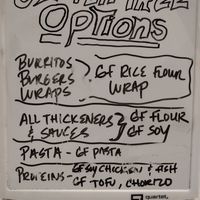 GLUTEN FREE
Options
BURRITOS
BURGERS
WRAPS
GF RICE FLOUR
WRAP
ALL THICKENERS
& SAUCES
GF FLOUR
GF SOY
PASTA - GF PASTA
PROTEINS - GF SOY CHICKEN & FISH
GF TOFU, CHORIZO
quartet